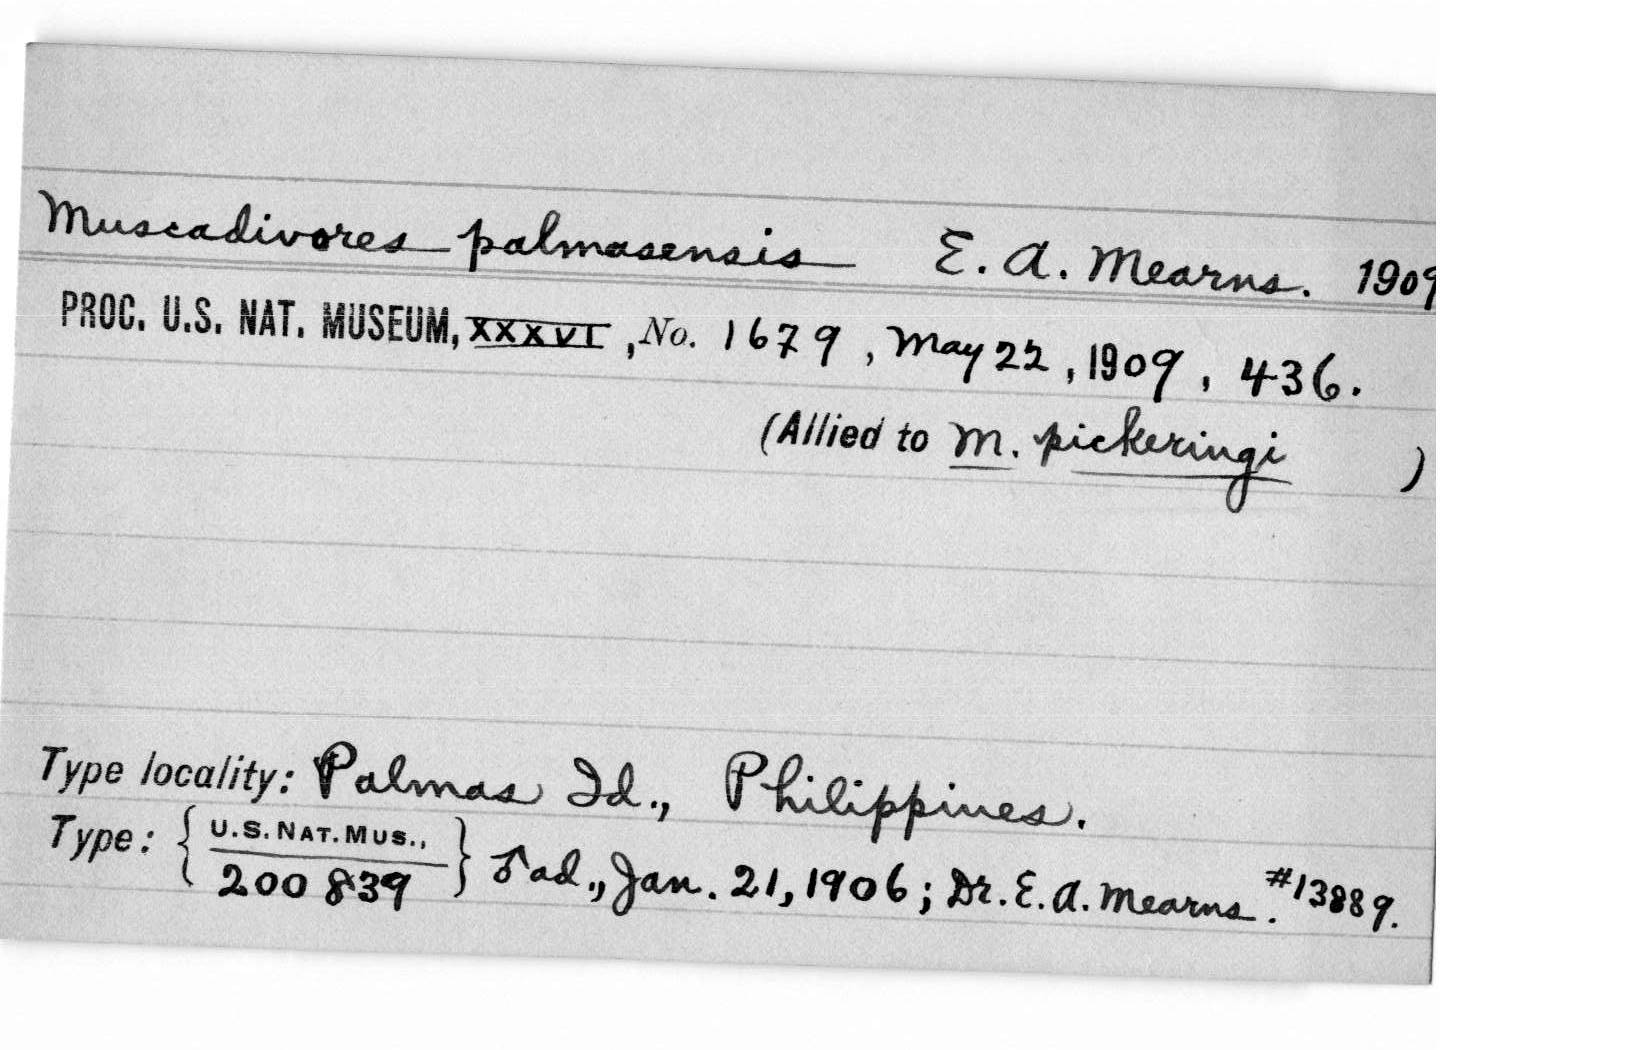 Muscadivores palmasensis E. A. Mearns. 1909
PROC. U.S. NAT. MUSEUM, XXXVI, No. 1679, May 22, 1909, 436.
(Allied to M. pickeringi )
Type locality: Palmas Id., Philippines.
Type: { U.S. NAT. MUS., } ♂ ad., Jan. 21, 1906; Dr. E. A. Mearns. #13889.
200839